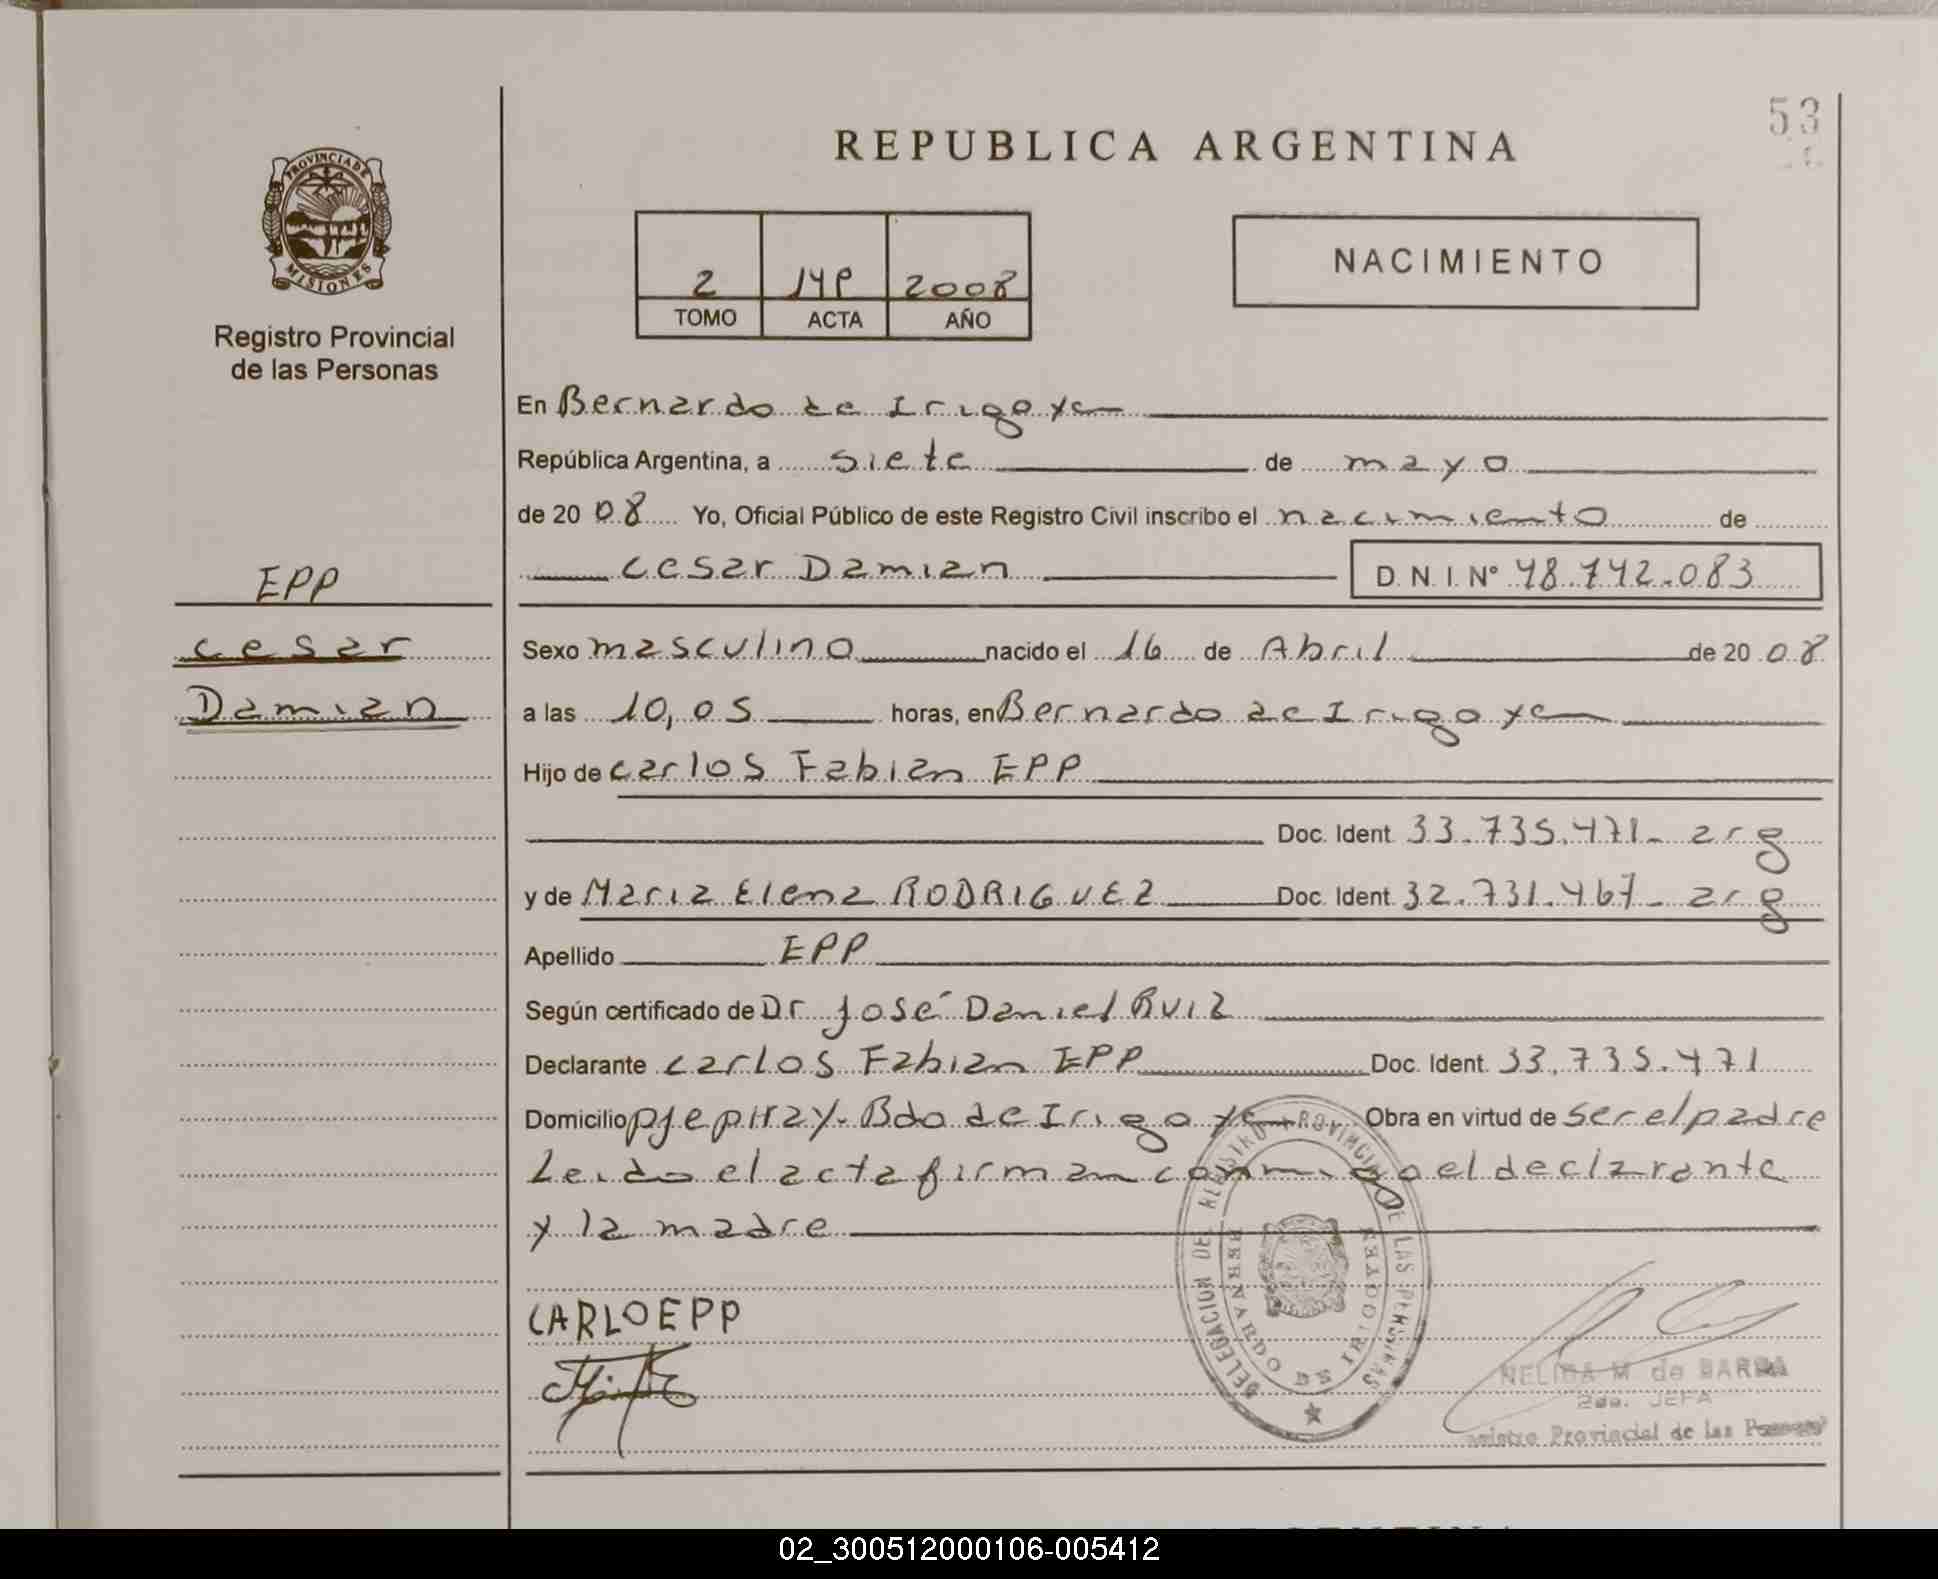 53
REPUBLICA ARGENTINA
PROVINCIA DE MISIONES
Registro Provincial
de las Personas
2 14P 2008
TOMO ACTA AÑO
NACIMIENTO
En Bernardo de Irigoyen
República Argentina, a siete de mayo
de 20 08 Yo, Oficial Público de este Registro Civil inscribo el nacimiento de
Cesar Damian D.N.I. N° 48.742.083
EPP
Cesar
Damian
Sexo masculino nacido el 16 de Abril de 20 08
a las 10,05 horas, en Bernardo de Irigoyen
Hijo de Carlos Fabian EPP
Doc. Ident. 33.735.471- arg
y de Maria Elena RODRIGUEZ Doc. Ident. 32.731.467- arg
Apellido EPP
Según certificado de Dr José Daniel Ruiz
Declarante Carlos Fabian EPP Doc. Ident. 33.735.471
Domicilio Pje piray- Bdo de Irigoyen Obra en virtud de ser el padre
Leido el acta firman conmigo el declarante
y la madre
CARLO EPP
DELEGACION DEL REGISTRO PROVINCIAL DE LAS PERSONAS
BERNARDO DE IRIGOYEN
NELIDA M. de BARRA
2da. JEFA
Provincial de las
02_300512000106-005412